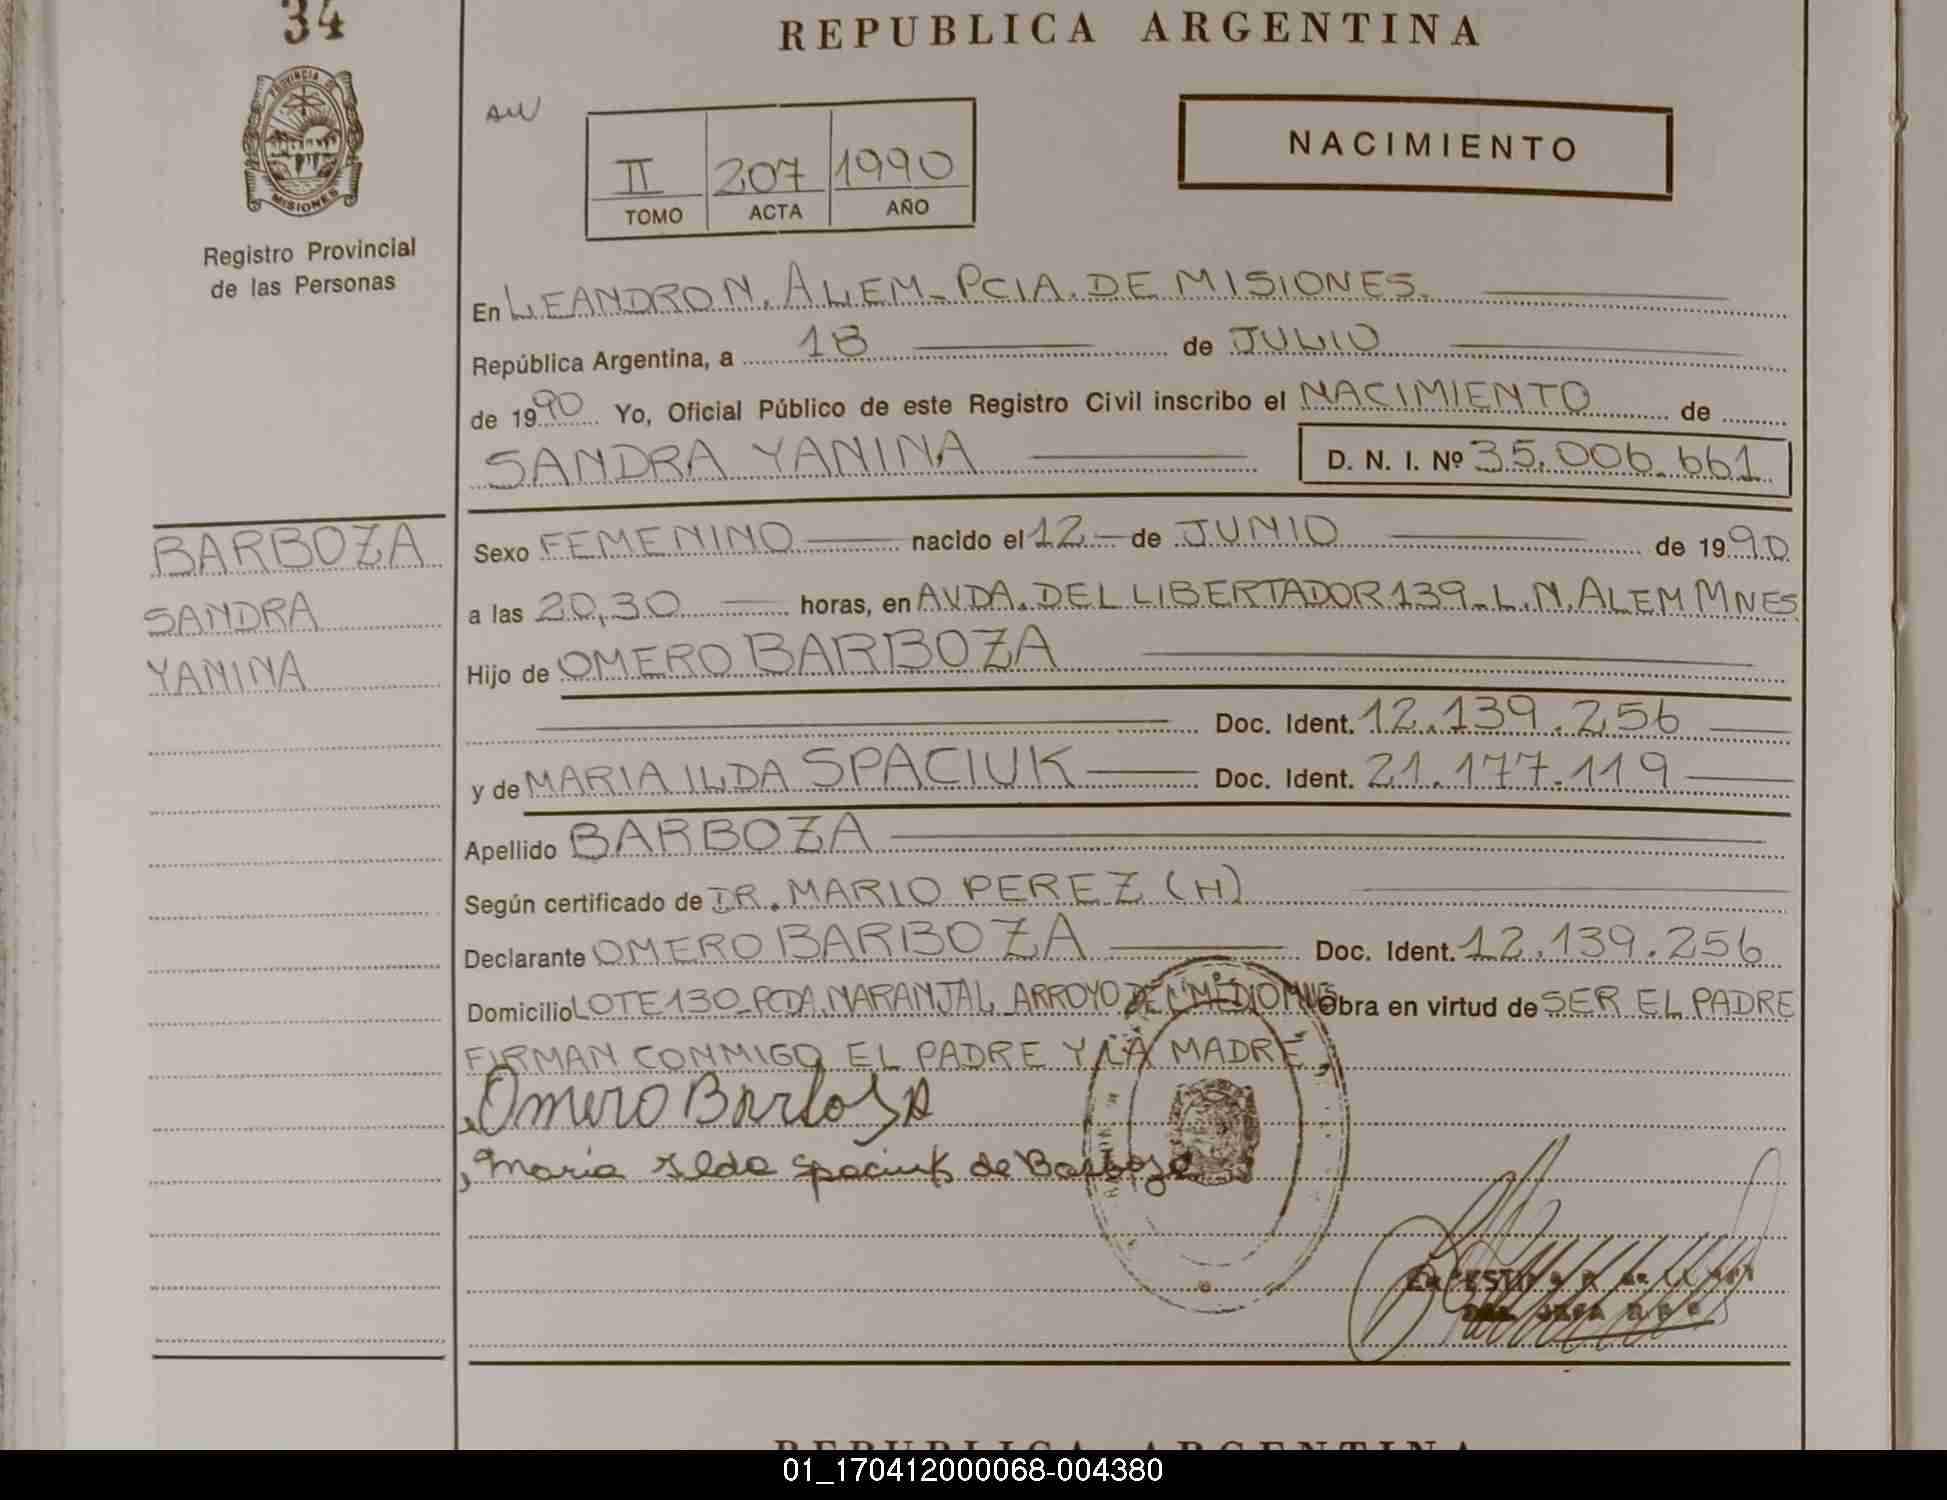 34
REPUBLICA ARGENTINA
PROVINCIA DE
MISIONES
Registro Provincial
de las Personas
NACIMIENTO
II 207 1990
TOMO ACTA AÑO
En LEANDRO N. ALEM - PCIA. DE MISIONES.
República Argentina, a 18 de JULIO
de 1990 Yo, Oficial Público de este Registro Civil inscribo el NACIMIENTO de
SANDRA YANINA D. N. I. Nº 35.006.661
BARBOZA
SANDRA
YANINA
Sexo FEMENINO nacido el 12 de JUNIO de 1990
a las 20,30 horas, en AVDA. DEL LIBERTADOR 139 - L.N. ALEM MNES
Hijo de OMERO BARBOZA
Doc. Ident. 12.139.256
y de MARIA ILDA SPACIUK Doc. Ident. 21.177.119
Apellido BARBOZA
Según certificado de DR. MARIO PEREZ (H)
Declarante OMERO BARBOZA Doc. Ident. 12.139.256
Domicilio LOTE 130 - PCDA. NARANJAL ARROYO DEL MEDIO MNES Obra en virtud de SER EL PADRE
FIRMAN CONMIGO EL PADRE Y LA MADRE
Omero Barboza
Maria Ilda Spaciuk de Barboza
REPUBLICA ARGENTINA
01_170412000068-004380